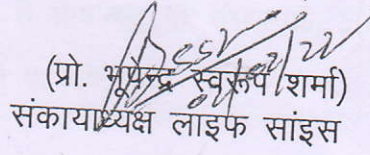 (प्रो. भूपेन्द्र स्वरूप शर्मा)
संकायाध्यक्ष लाइफ सांइस